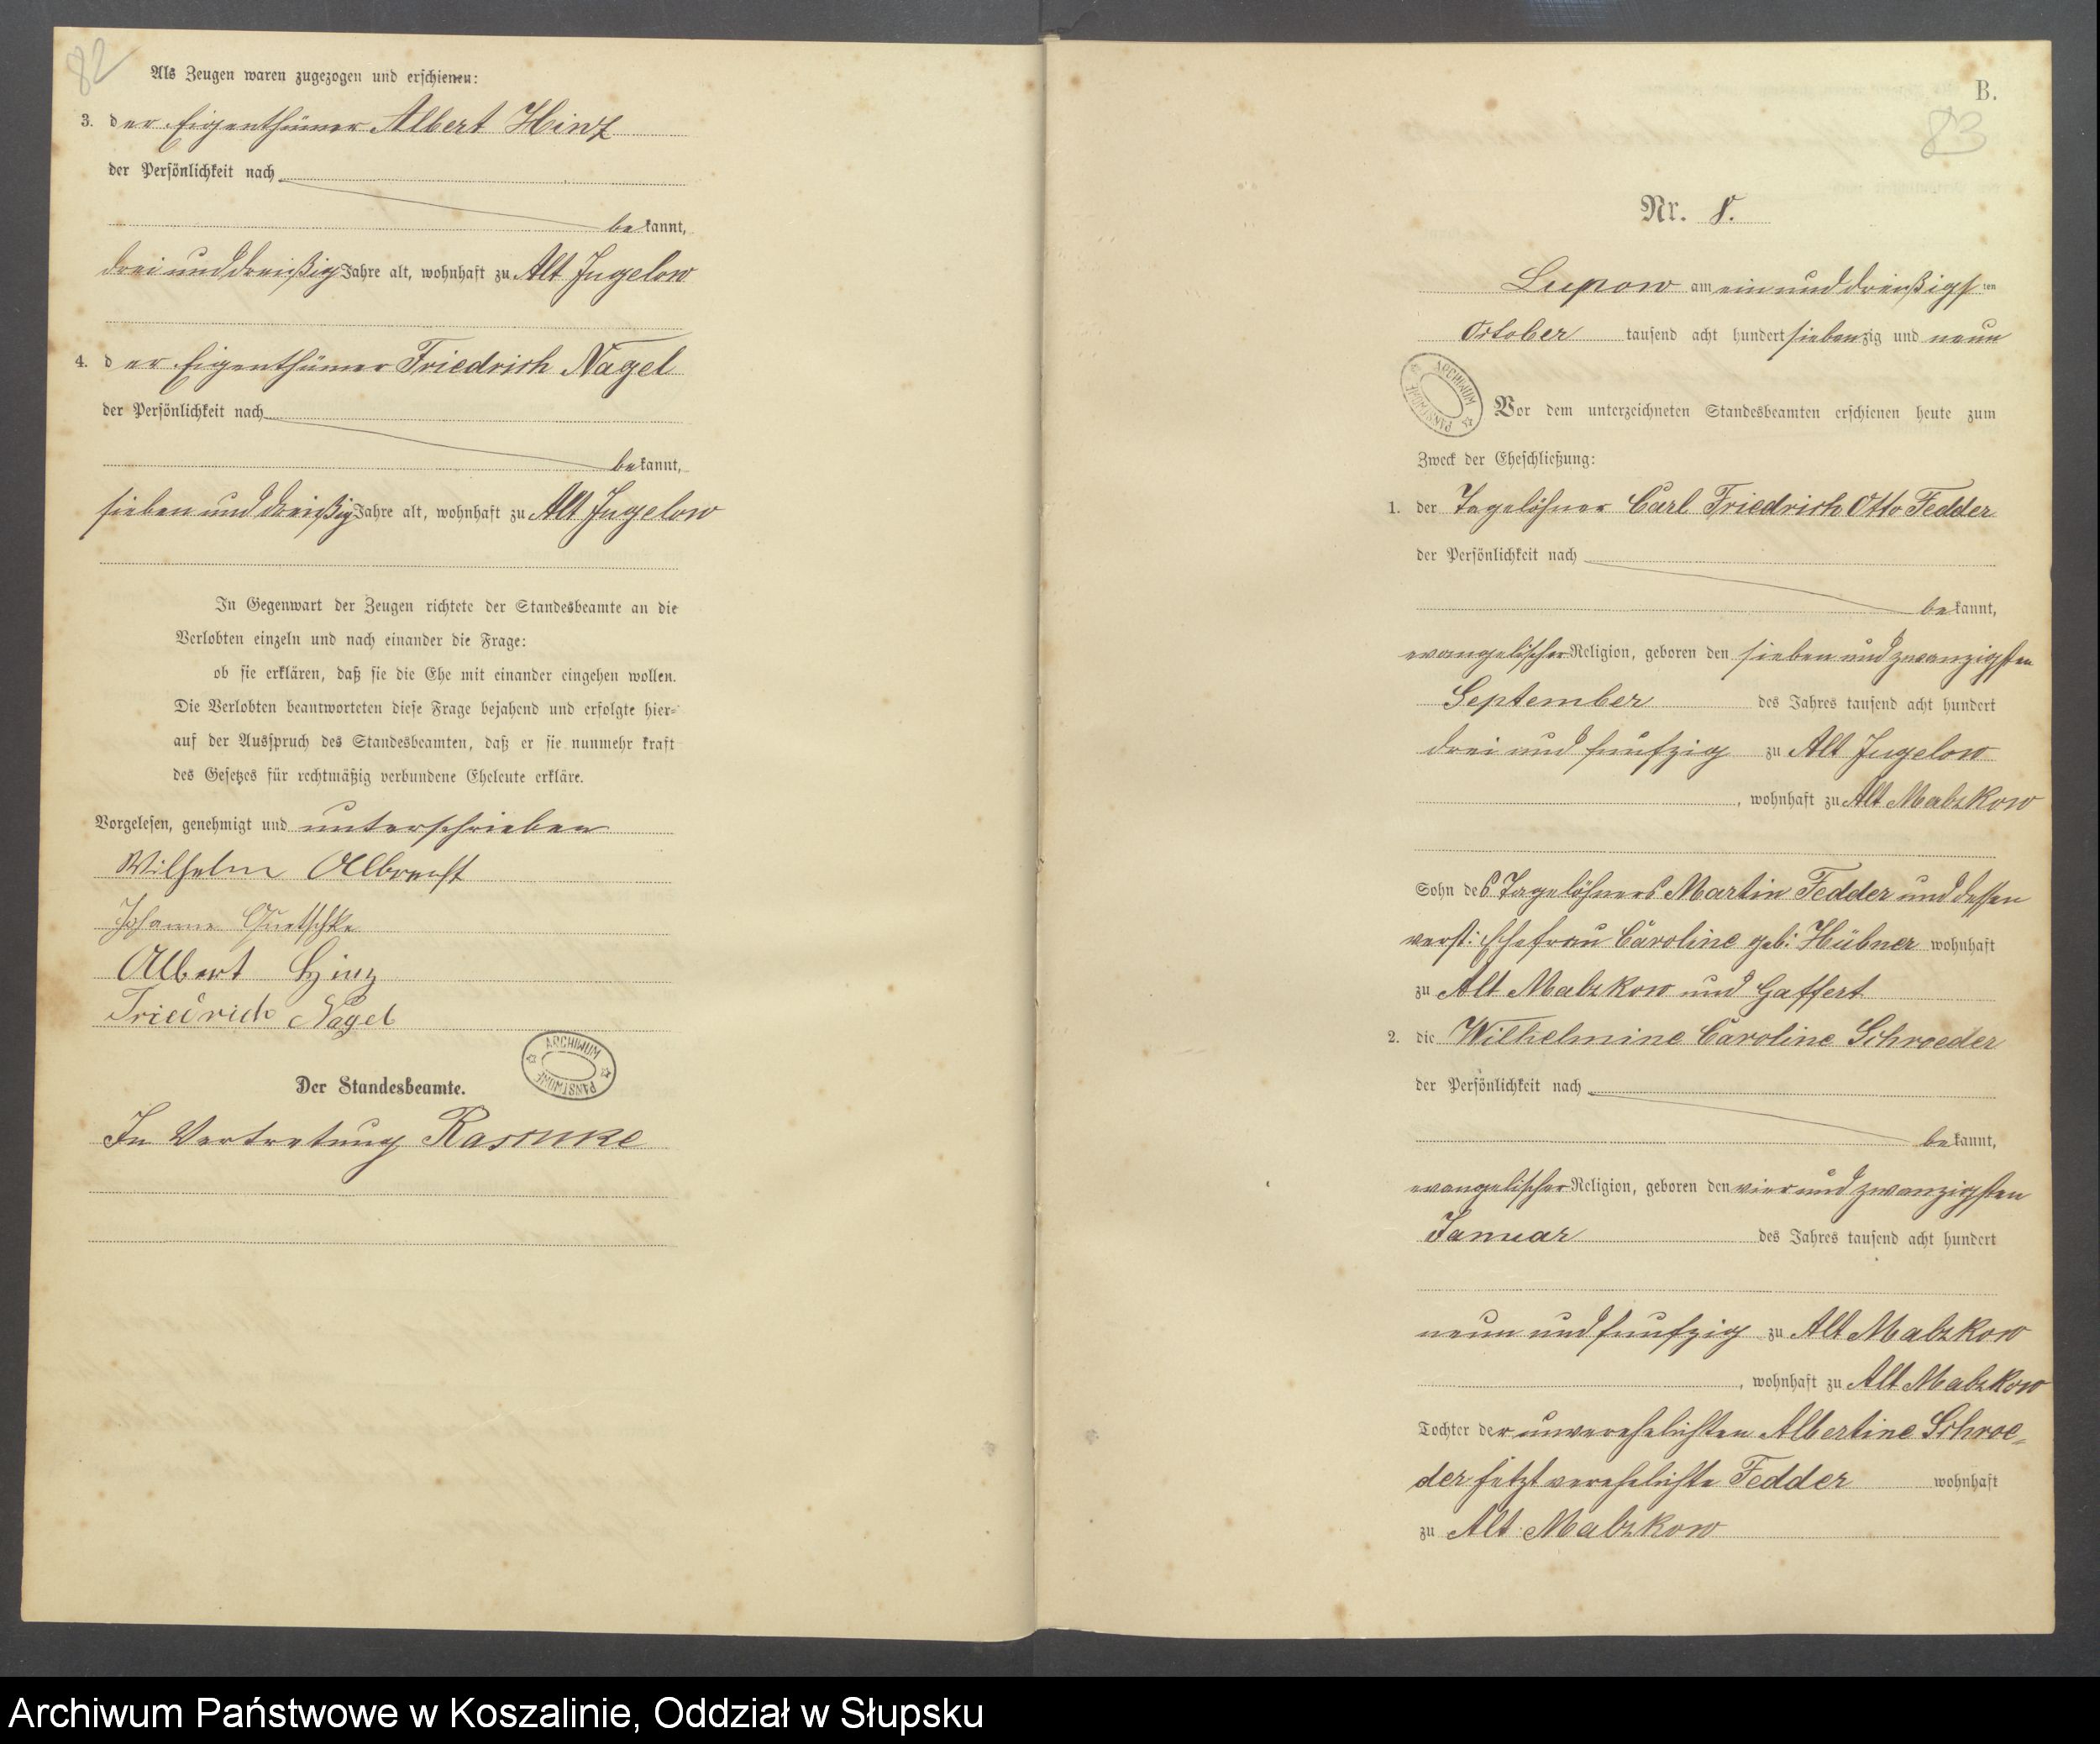 82
Als Zeugen waren zugezogen und erschienen:
3. der Eigenthümer Albert Hinz
der Persönlichkeit nach
bekannt,
drei und dreißig Jahre alt, wohnhaft zu Alt Jugelow
4. der Eigenthümer Friedrich Nagel
der Persönlichkeit nach
bekannt,
sieben und dreißig Jahre alt, wohnhaft zu Alt Jugelow
In Gegenwart der Zeugen richtete der Standesbeamte an die
Verlobten einzeln und nach einander die Frage:
ob sie erklären, daß sie die Ehe mit einander eingehen wollen.
Die Verlobten beantworteten diese Frage bejahend und erfolgte hier-
auf der Ausspruch des Standesbeamten, daß er sie nunmehr kraft
des Gesetzes für rechtmäßig verbundene Eheleute erkläre.
Vorgelesen, genehmigt und unterschrieben
Wilhelm Albrecht
Johanne
Albert Hinz
Friedrich Nagel
ARCHIWUM PAŃSTWOWE
Der Standesbeamte.
In Vertretung
B.
83
Nr. 8.
Lupow am ein und dreißigsten
October tausend acht hundert siebenzig und neun
ARCHIWUM PAŃSTWOWE
Vor dem unterzeichneten Standesbeamten erschienen heute zum
Zweck der Eheschließung:
1. der Tagelöhner Carl Friedrich Otto Fedder
der Persönlichkeit nach
bekannt,
evangelischer Religion, geboren den sieben und zwanzigsten
September des Jahres tausend acht hundert
drei und funfzig zu Alt Jugelow
, wohnhaft zu Alt Malzkow
Sohn des Tagelöhners Martin Fedder und dessen
verst: Ehefrau Caroline geb: Hübner wohnhaft
zu Alt Malzkow und Gaffert
2. die Wilhelmine Caroline Schroeder
der Persönlichkeit nach
bekannt,
evangelischer Religion, geboren den vier und zwanzigsten
Januar des Jahres tausend acht hundert
neun und funfzig zu Alt Malzkow
, wohnhaft zu Alt Malzkow
Tochter der unverehelichten Albertine Schroe-
der jetzt verehelichte Fedder wohnhaft
zu Alt Malzkow
Archiwum Państwowe w Koszalinie, Oddział w Słupsku